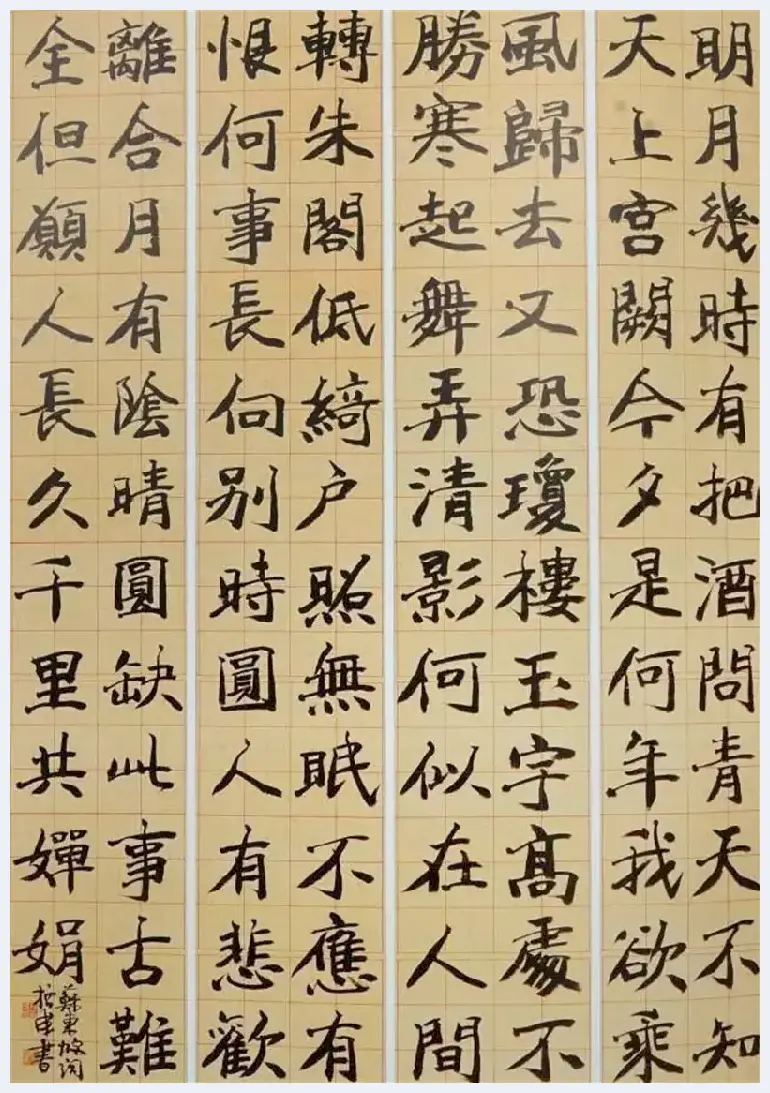 明月幾時有把酒問青天不知
天上宮闕今夕是何年我欲乘
風歸去又恐瓊樓玉宇髙處不
勝寒起舞弄清影何似在人間
轉朱閣低綺户照無眠不應有
恨何事長向别時圓人有悲歡
離合月有陰晴圓缺此事古難
全但願人長久千里共嬋娟
蘇東坡詞
書